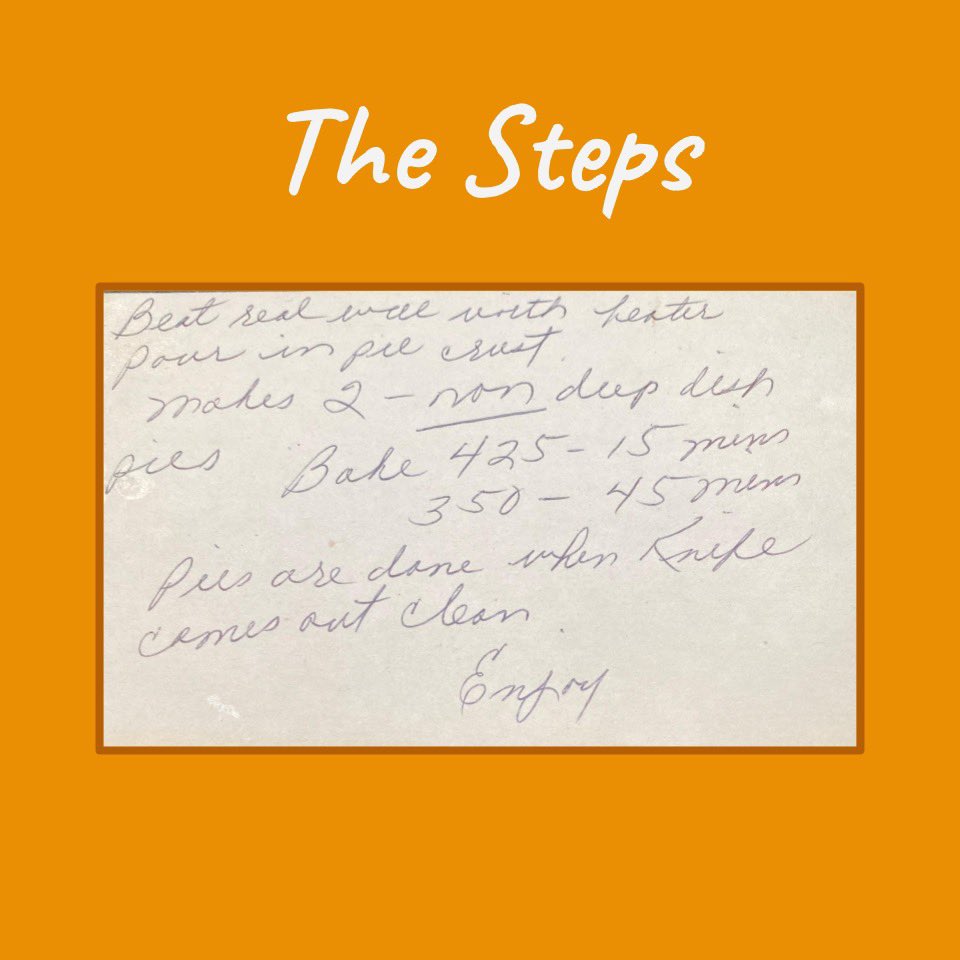 The Steps
Beat real well with heater
pour in pie crust.
makes 2 - non deep dish
pies Bake 425 - 15 mins
350 - 45 mins
Pies are done when Knife
comes out clean
Enjoy